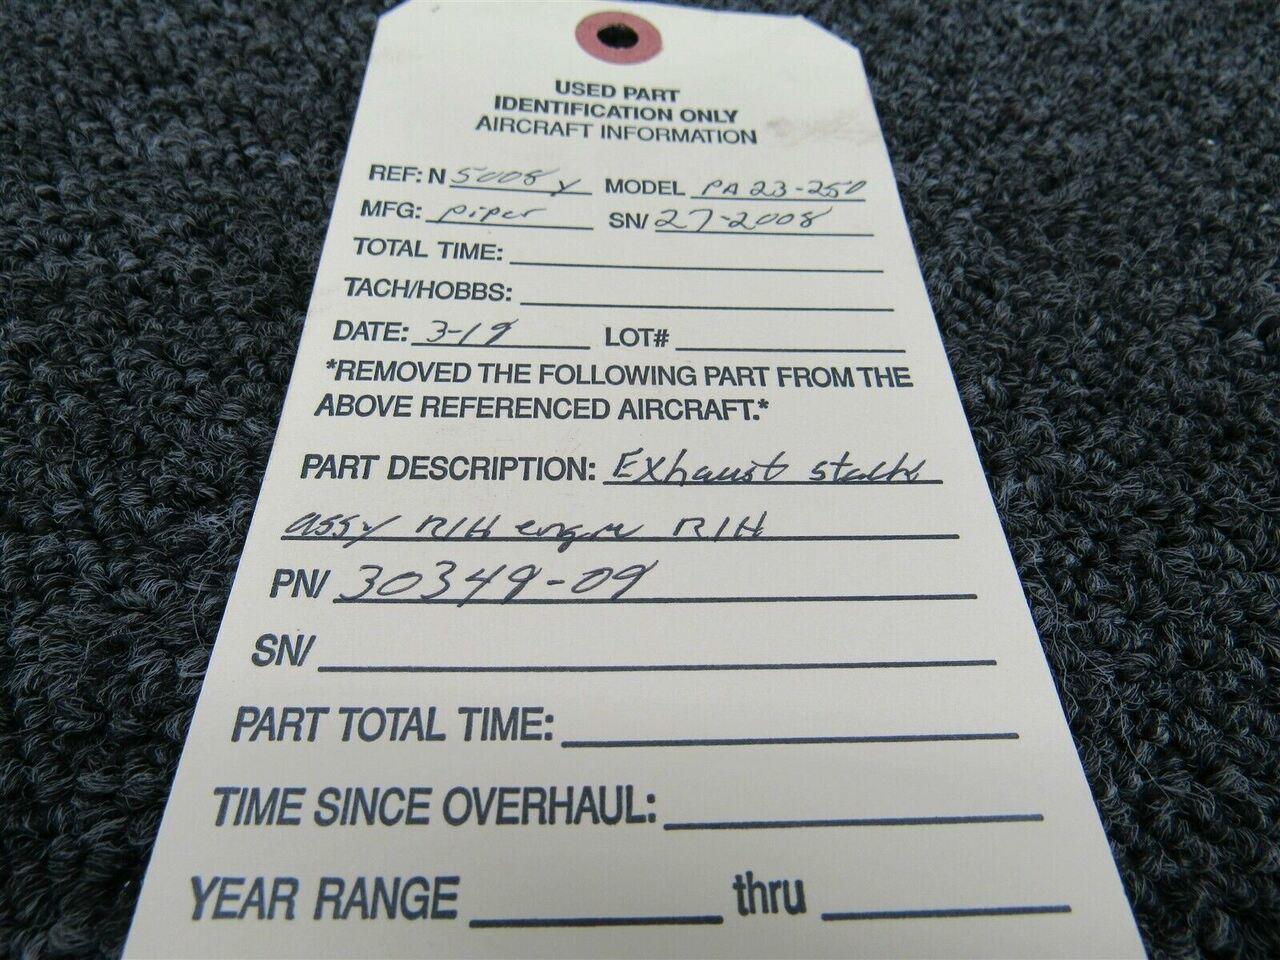 USED PART
IDENTIFICATION ONLY
AIRCRAFT INFORMATION
REF: N 5008Y MODEL PA23-250
MFG: Piper SN/ 27-2008
TOTAL TIME:
TACH/HOBBS:
DATE: 3-19 LOT#
*REMOVED THE FOLLOWING PART FROM THE
ABOVE REFERENCED AIRCRAFT.*
PART DESCRIPTION: Exhaust stack
assy R/H engine R/H
PN/ 30349-09
SN/
PART TOTAL TIME:
TIME SINCE OVERHAUL:
YEAR RANGE thru